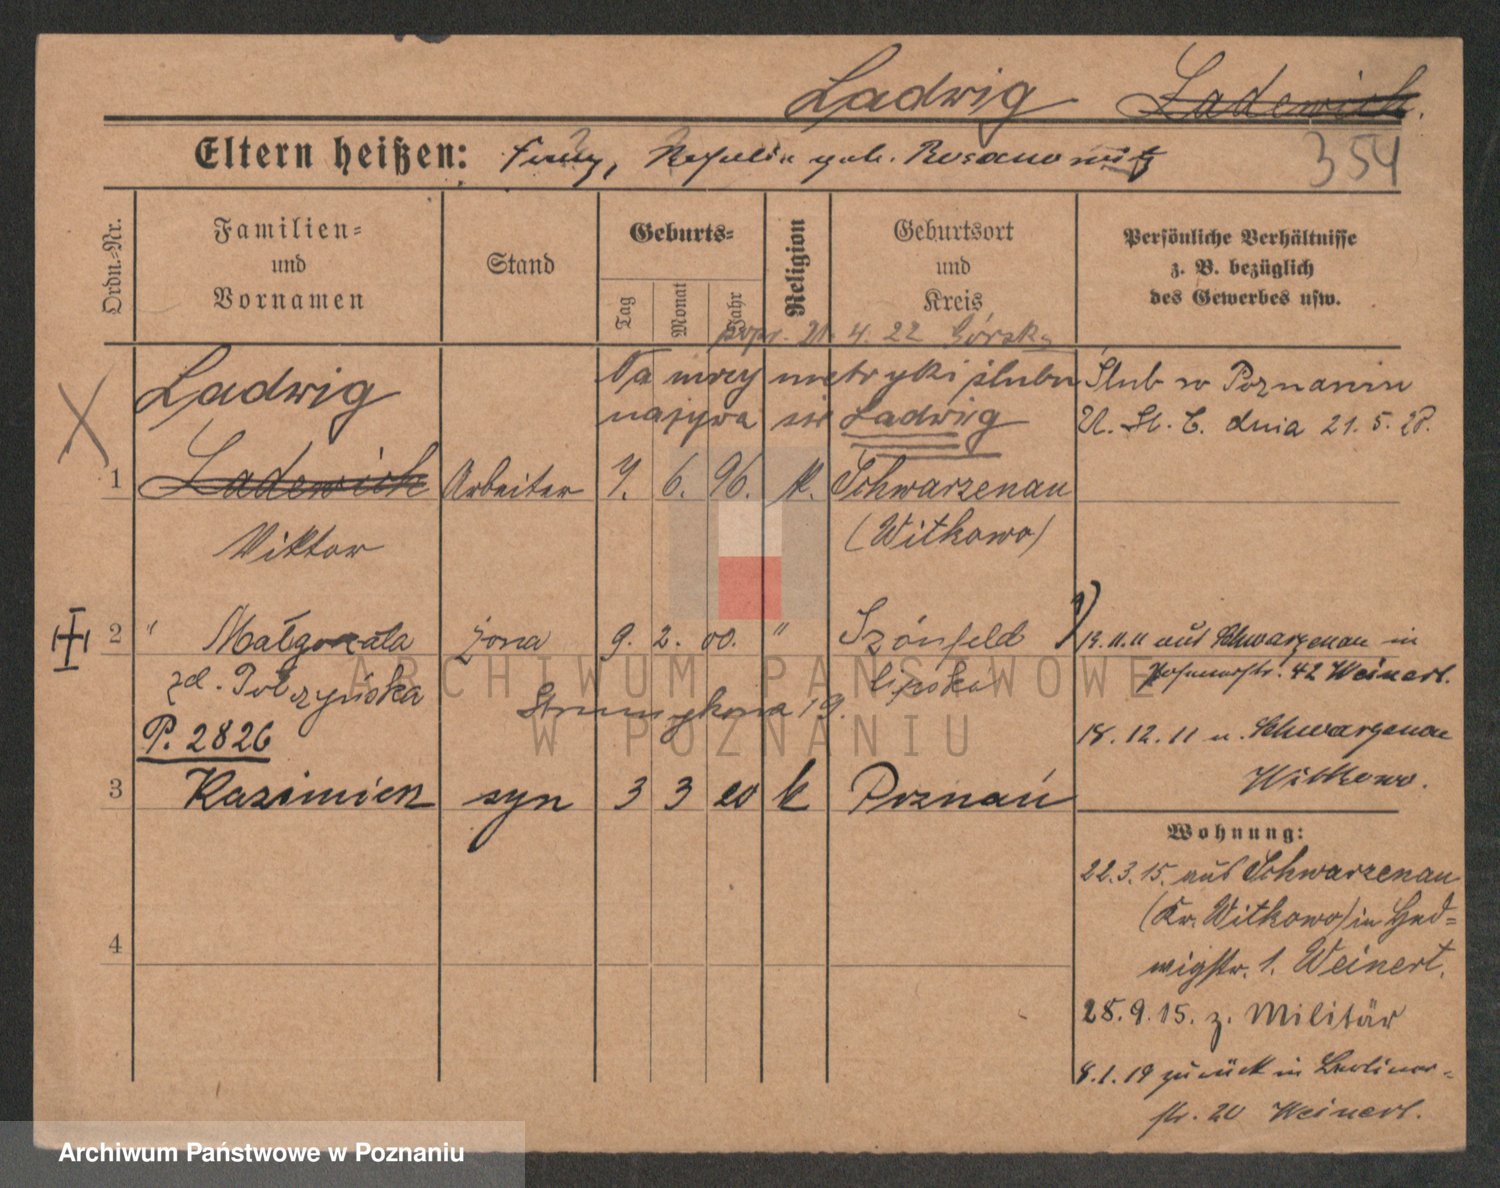 Ladwig Ladewich.
Eltern heißen: Franz, geb. Rosanowitz
354
Ordn.-Nr.
Familien=
und
Vornamen
Stand
Geburts=
Tag
Monat
Jahr
Religion
Geburtsort
und
Kreis
Persönliche Verhältnisse
z. B. bezüglich
des Gewerbes usw.
popr. 21. 4. 22 Górska
Ladwig
Na mocy metryki ślubu
nazywa się Ladwig
Ślub w Poznaniu
U. St. C. dnia 21. 5. 28.
1 Ladewich Arbeiter 7. 6. 96. k. Schwarzenau
Viktor (Witkowo)
2 " Małgorzata żona 9. 2. 00. " Szónfeld
zd. Polczyńska
Strumykowa 19.
P. 2826
3 Kazimierz syn 3 3 20 k Poznań
4
13.11.11 aus Schwarzenau in
42 Weinert.
18. 12. 11 n. Schwarzenau
Witkowo.
Wohnung:
22.3.15. aus Schwarzenau
(Kr. Witkowo) in Hed=
wigstr. 1. Weinert.
28. 9. 15. z. Militär
8.1.19 zurück in Berliner=
str. 20 Weinert.
ARCHIWUM PAŃSTWOWE
W POZNANIU
Archiwum Państwowe w Poznaniu